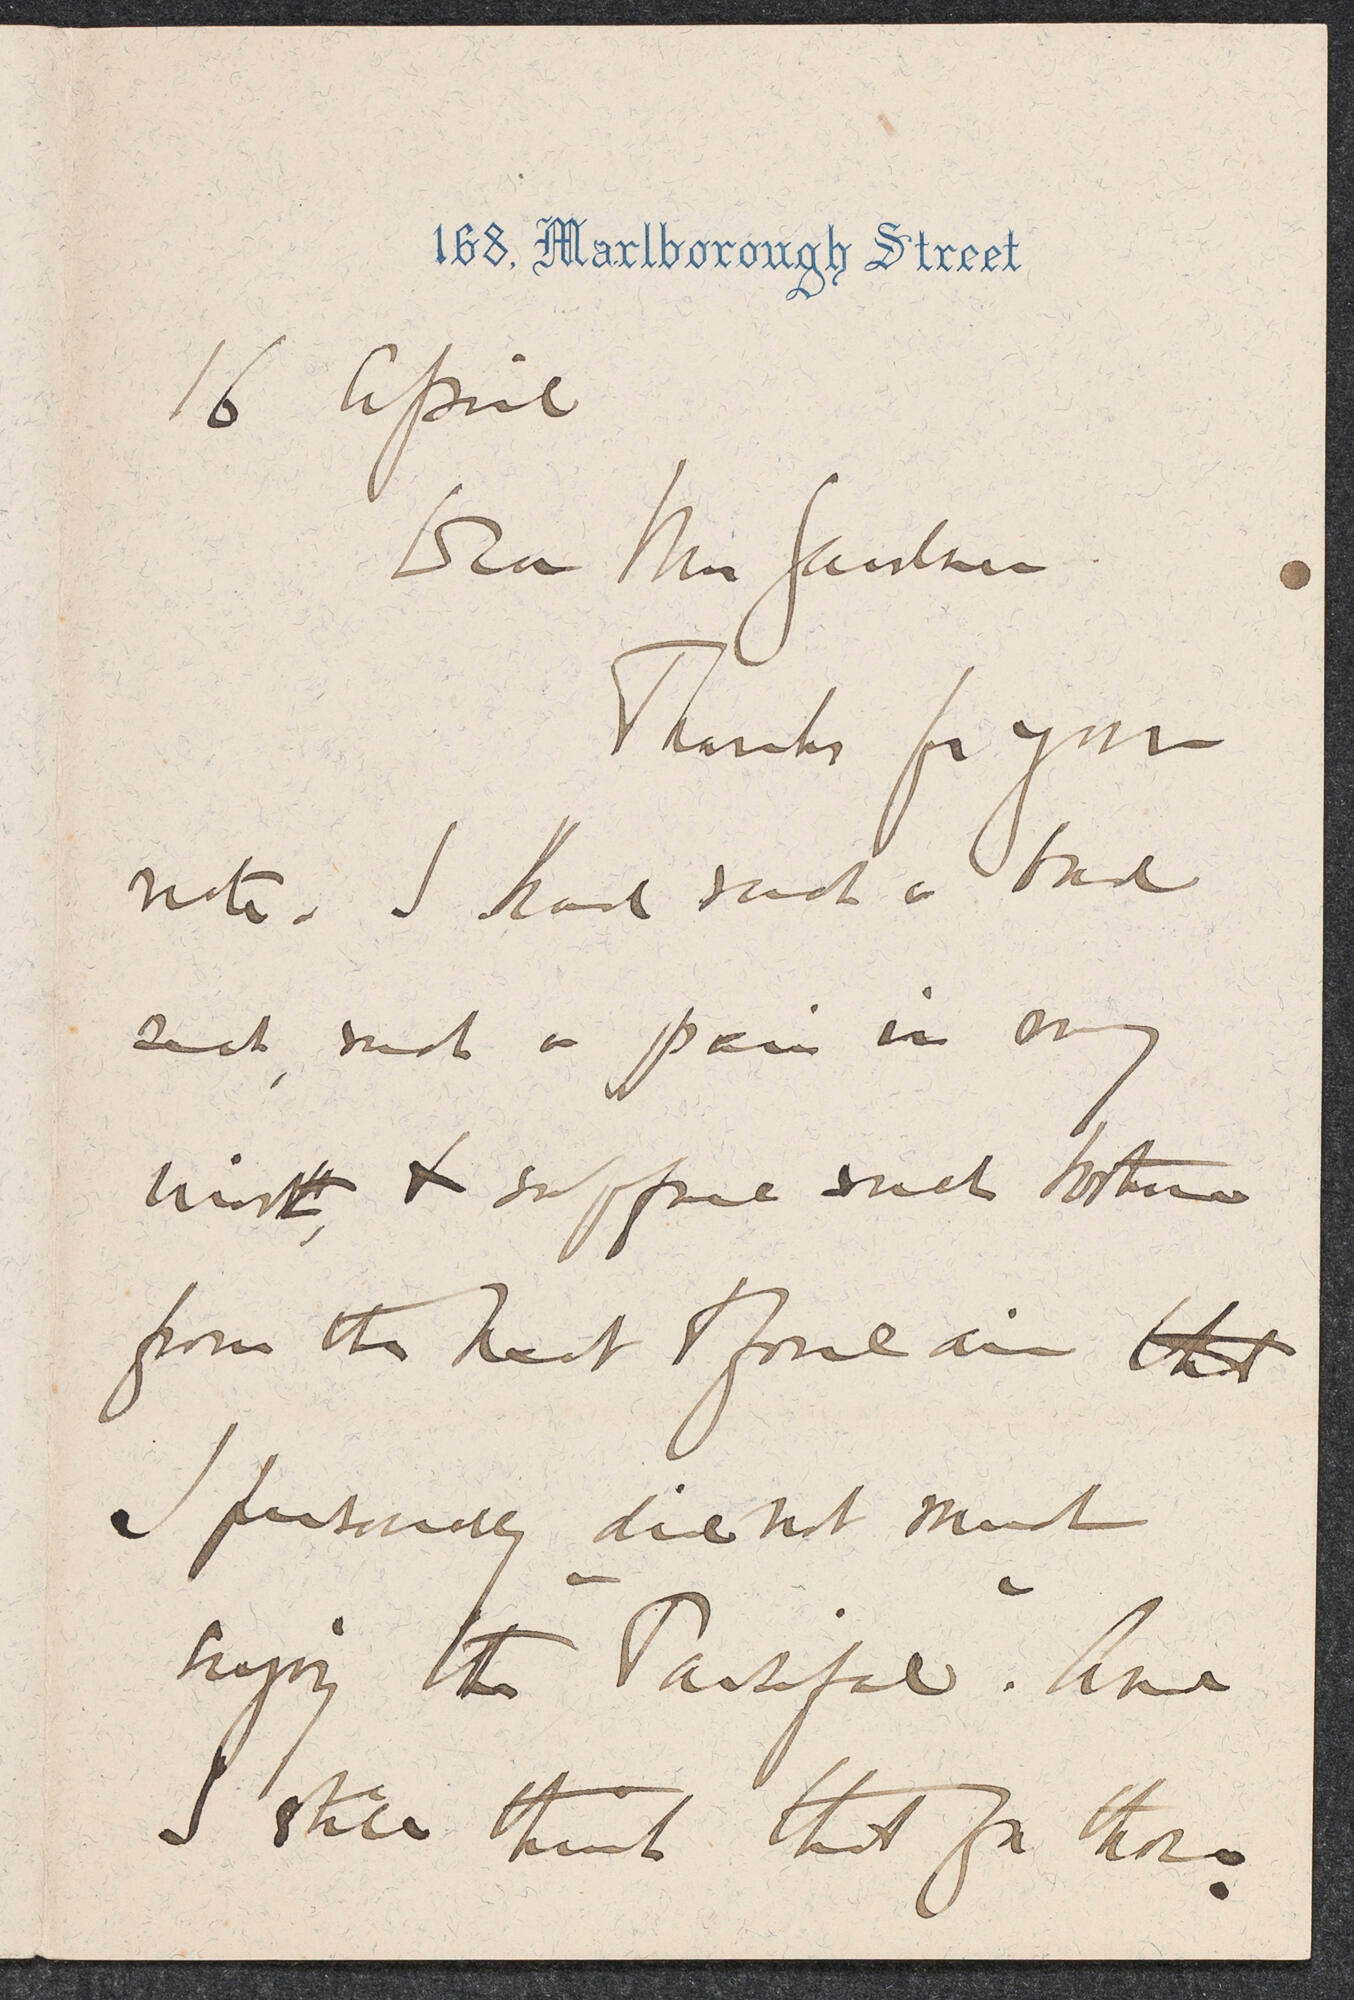 168, Marlborough Street
16 April
Dear Mrs Gardner
Thanks for your
note. I had such a bad
seat, such a pain in my
, & suffered such torture
from the heat & foul air that
I personally did not much
enjoy the "Parsifal". And
I still think that for those